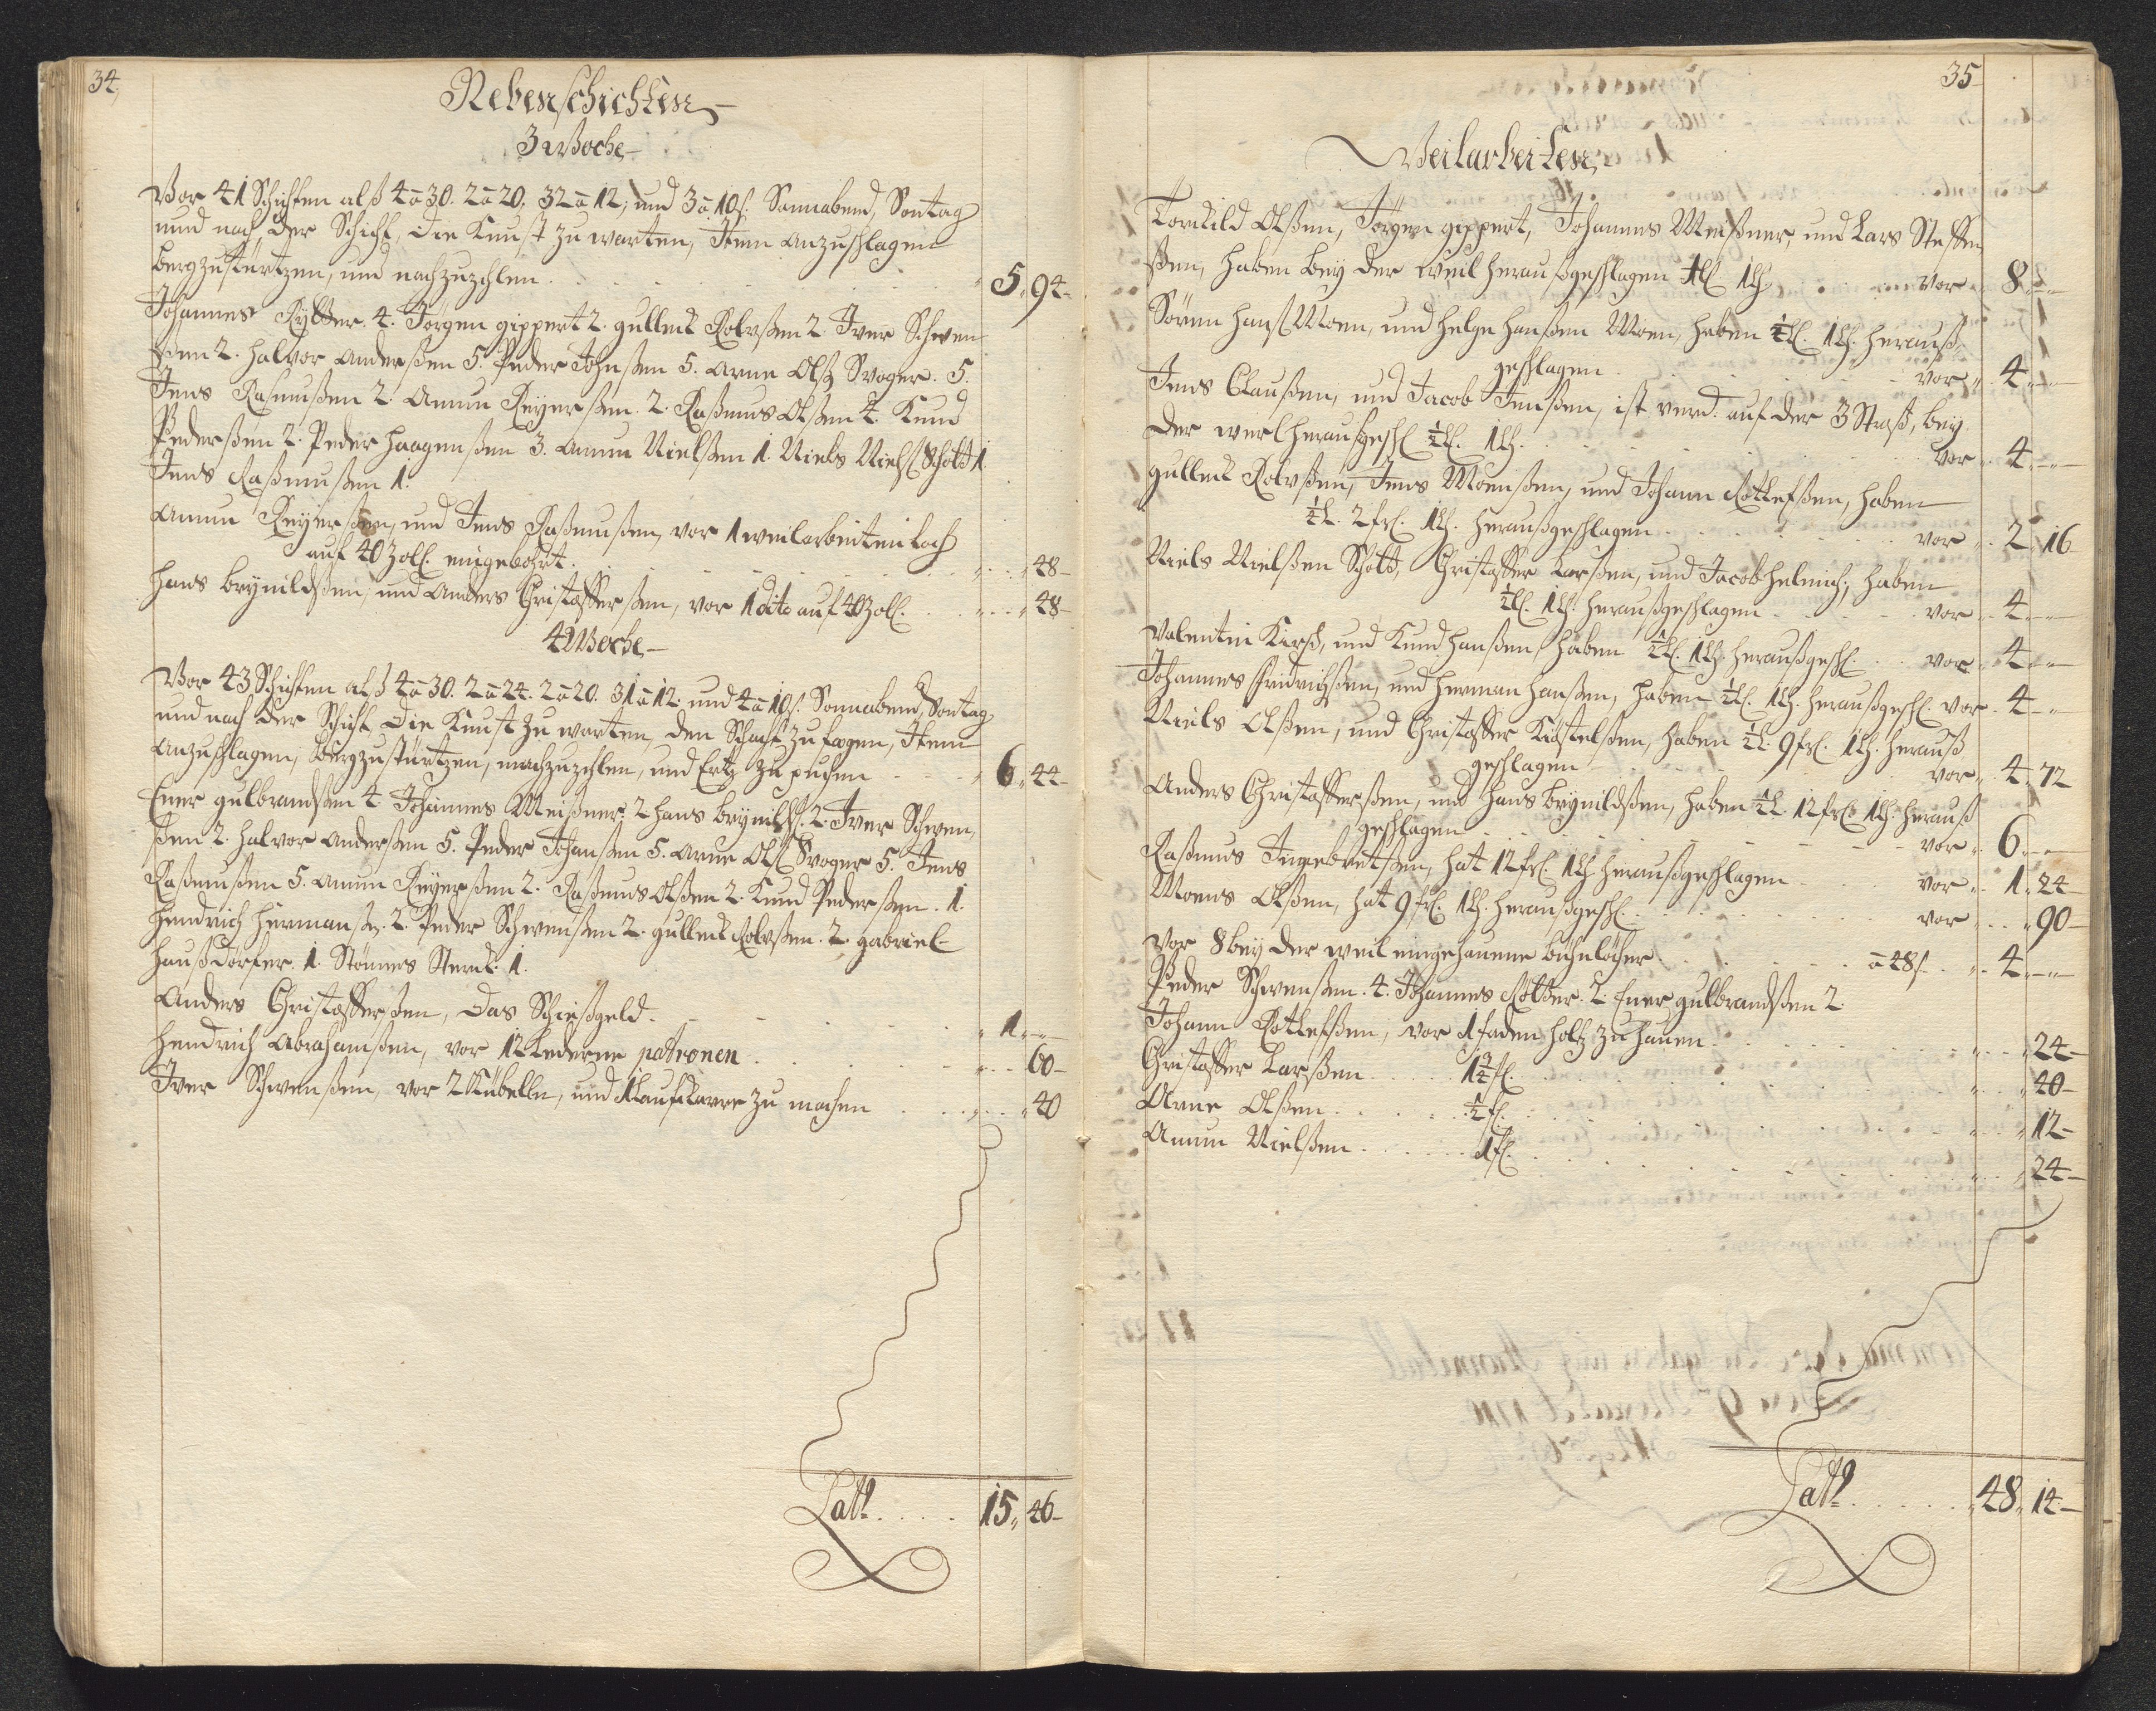 34.
Nebenschichten
3 Woche
Vor 41 Schichten alß 4 a 30. 2 a 20. 32 a 12, und 3 a 10 s. Sonnabend, Sontag
und nach der Schicht, die Kunst zu warten, Item anzuschlagen
berg zustürtzen, und nachzuzehlen . . . 5 „ 94
Johannes Rytter. 4. Jörgen gippert 2. gullech Rolvßen 2. Iver Schwen
ßen 2. halvor Anderßen 5. Peder Johnßen 5. Arne Olß Svoger. 5.
Jens Rasmußen 2. Amun Reyerßen. 2. Raßmus Olßen 4. Knud
Pederßen 2. Peder haagenßen 3. Amun Nielßen 1. Niels Nielß Schött 1.
Jens Raßmußen 1.
Amun Reyerßen, und Jens Raßmußen, vor 1 weilarbeiten loch
auf 40 Zoll. eingebohrt . . . 48
hans brynildßen, und Anders Christofferßen, vor 1 dito auf 40 Zoll. . . . 48
4 Woche
Vor 43 Schichten alß 4 a 30. 2 a 24. 2 a 20. 31 a 12. und 4 a 10 s. Sonnabend, Sontag
und nach der Schicht die Kunst zu warten, den Schacht zu fegen, Item
anzuschlagen, berg zustürtzen, nachzuzehlen, und Ertz zu puchen . . . 6 „ 44
Ener gulbrandßen 4. Johannes Meißner 2 hans brynildß. 2. Iver Schwen
ßen 2. halvor Anderßen 5. Peder Johanßen 5. Arne Olß Svoger 5. Jens
Raßmußen 5. Amun Reyerßen 2. Raßmus Olßen 2. Knud Pederßen. 1.
hendrich hermanß. 2. Peder Schwenßen 2. gullech Rolvßen. 2. gabriel
haußdörfer. 1. Stönnes Stend. 1.
Anders Christofferßen, das Schießgeld . . . 1 „ —
hendrich Abrahamßen, vor 12 Lederne patronen . . . 60
Iver Schwenßen, vor 2 Kübelln, und 1 Laufkarre zu machen . . . 40
Latt. . . . 15 „ 46
35
Weilarbeiten
Torkild Olßen, Jörgen gippert, Johannes Meißner, und Lars Steffen
ßen, haben bey der weil heraußgeschlagen 1 L. 1 lh. vor 8 „ —
Sören hanß Moen, und helge hanßen Moen, haben ½ L. 1 lh. herauß
geschlagen . . . vor 4 „ —
Jens Claußen, und Jacob Jenßen, ist verd. auf der 3 Straß, bey
der weil heraußgeschl. ½ L. 1 lh. . . . vor 4 „ —
gullech Rolvßen, Jens Monßen, und Johann Rotlefßen, haben
¼ L. 2 fxl. 1 lh. heraußgeschlagen . . . vor 2 „ 16
Niels Nielßen Schött, Christoffer Larßen, und Jacob helmich, haben
½ L. 1 lh. heraußgeschlagen . . . vor 4 „ —
Valentin Kirsch, und Knud hanßen, haben ½ L. 1 lh. heraußgeschl. . . vor 4 „ —
Johannes Fridrichßen, und herman hanßen, haben ½ L. 1 lh. heraußgeschl. vor 4 „ —
Niels Olßen, und Christoffer Kistelßen, haben ½ L. 9 fxl. 1 lh. herauß
geschlagen . . . vor 4 „ 72
Anders Christofferßen, und hans brynildßen, haben ½ L. 12 fxl. 1 lh. herauß
geschlagen . . . vor 6 „ —
Raßmus Ingebretßen, hat 12 fxl. 1 lh. heraußgeschlagen . . . vor 1 „ 24
Moens Olßen, hat 9 fxl. 1 lh. heraußgeschl. . . . vor 90
Vor 8 bey der weil eingehauene bühnlöcher . . . a 48 s. 4 „ —
Peder Schwenßen. 4. Johannes Rötter. 2. Ener gulbrandßen 2.
Johann Rotlefßen, vor 1 faden holtz zu hauen . . . 24
Christoffer Larßen . . . 1¾ f. . . . 40
Arne Olßen . . . ½ f. . . . 12
Amun Nielßen . . . 1 f. . . . 24
Latt. . . . 48 „ 14